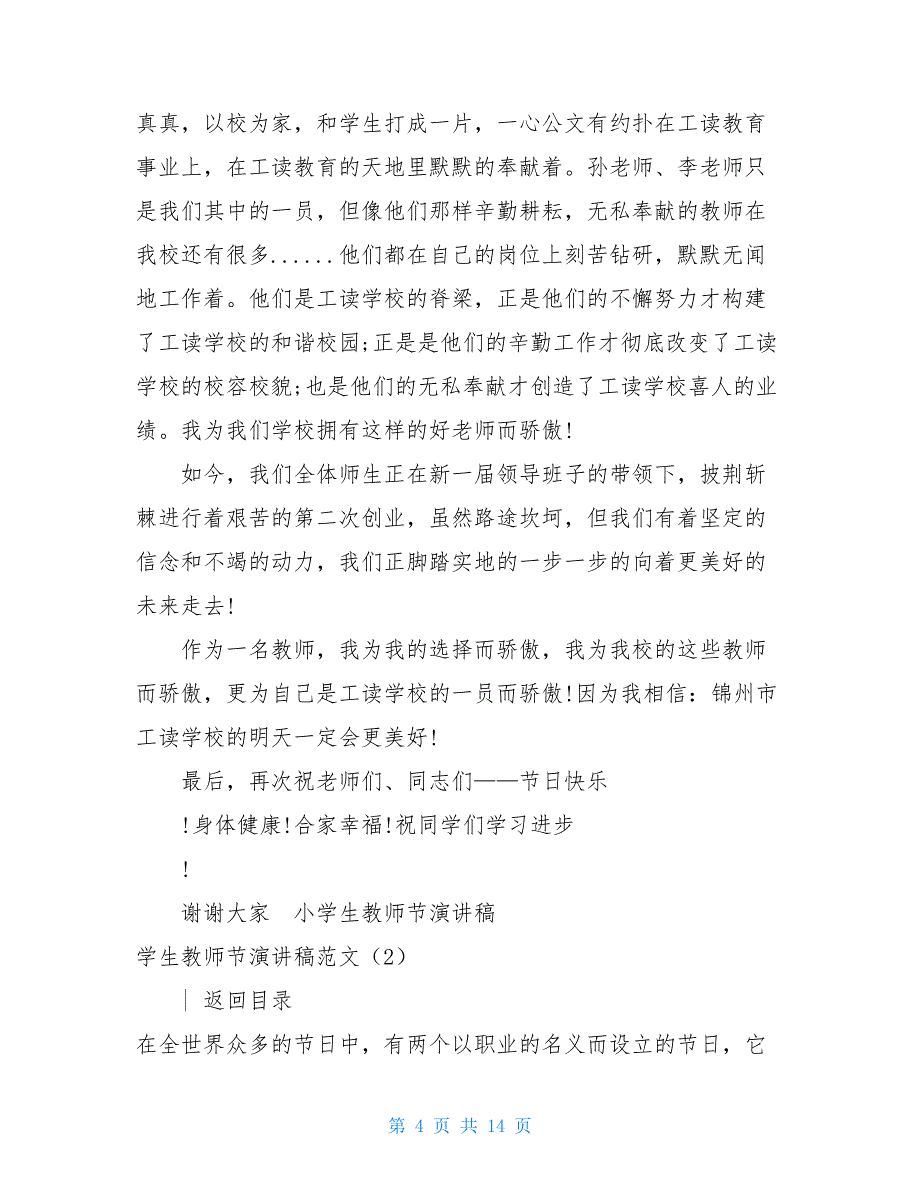 真真，以校为家，和学生打成一片，一心公文有约扑在工读教育
事业上，在工读教育的天地里默默的奉献着。孙老师、李老师只
是我们其中的一员，但像他们那样辛勤耕耘，无私奉献的教师在
我校还有很多......他们都在自己的岗位上刻苦钻研，默默无闻
地工作着。他们是工读学校的脊梁，正是他们的不懈努力才构建
了工读学校的和谐校园;正是是他们的辛勤工作才彻底改变了工读
学校的校容校貌;也是他们的无私奉献才创造了工读学校喜人的业
绩。我为我们学校拥有这样的好老师而骄傲!
如今，我们全体师生正在新一届领导班子的带领下，披荆斩
棘进行着艰苦的第二次创业，虽然路途坎坷，但我们有着坚定的
信念和不竭的动力，我们正脚踏实地的一步一步的向着更美好的
未来走去!
作为一名教师，我为我的选择而骄傲，我为我校的这些教师
而骄傲，更为自己是工读学校的一员而骄傲!因为我相信：锦州市
工读学校的明天一定会更美好!
最后，再次祝老师们、同志们——节日快乐
!身体健康!合家幸福!祝同学们学习进步
!
谢谢大家　小学生教师节演讲稿
学生教师节演讲稿范文（2）
| 返回目录
在全世界众多的节日中，有两个以职业的名义而设立的节日，它
第 4 页 共 14 页